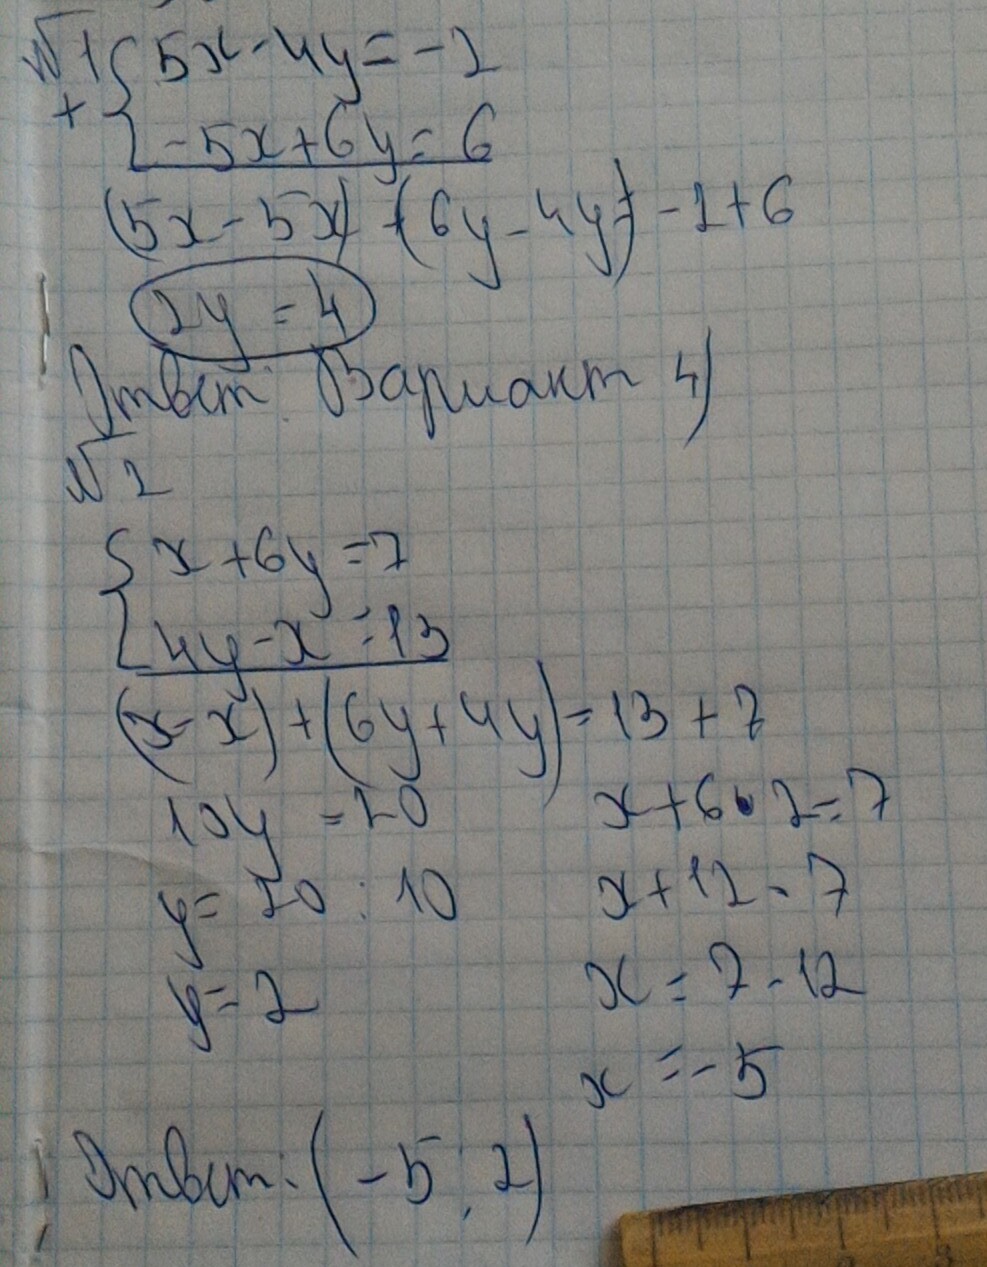 №1 { 5x-4y=-2
+ { -5x+6y=6
(5x-5x)+(6y-4y)=-2+6
2y=4
Ответ: Вариант 4)
№2
{ x+6y=7
{ 4y-x=13
(x-x)+(6y+4y)=13+7
10y=20
y=20:10
y=2
x+6·2=7
x+12=7
x=7-12
x=-5
Ответ: (-5;2)